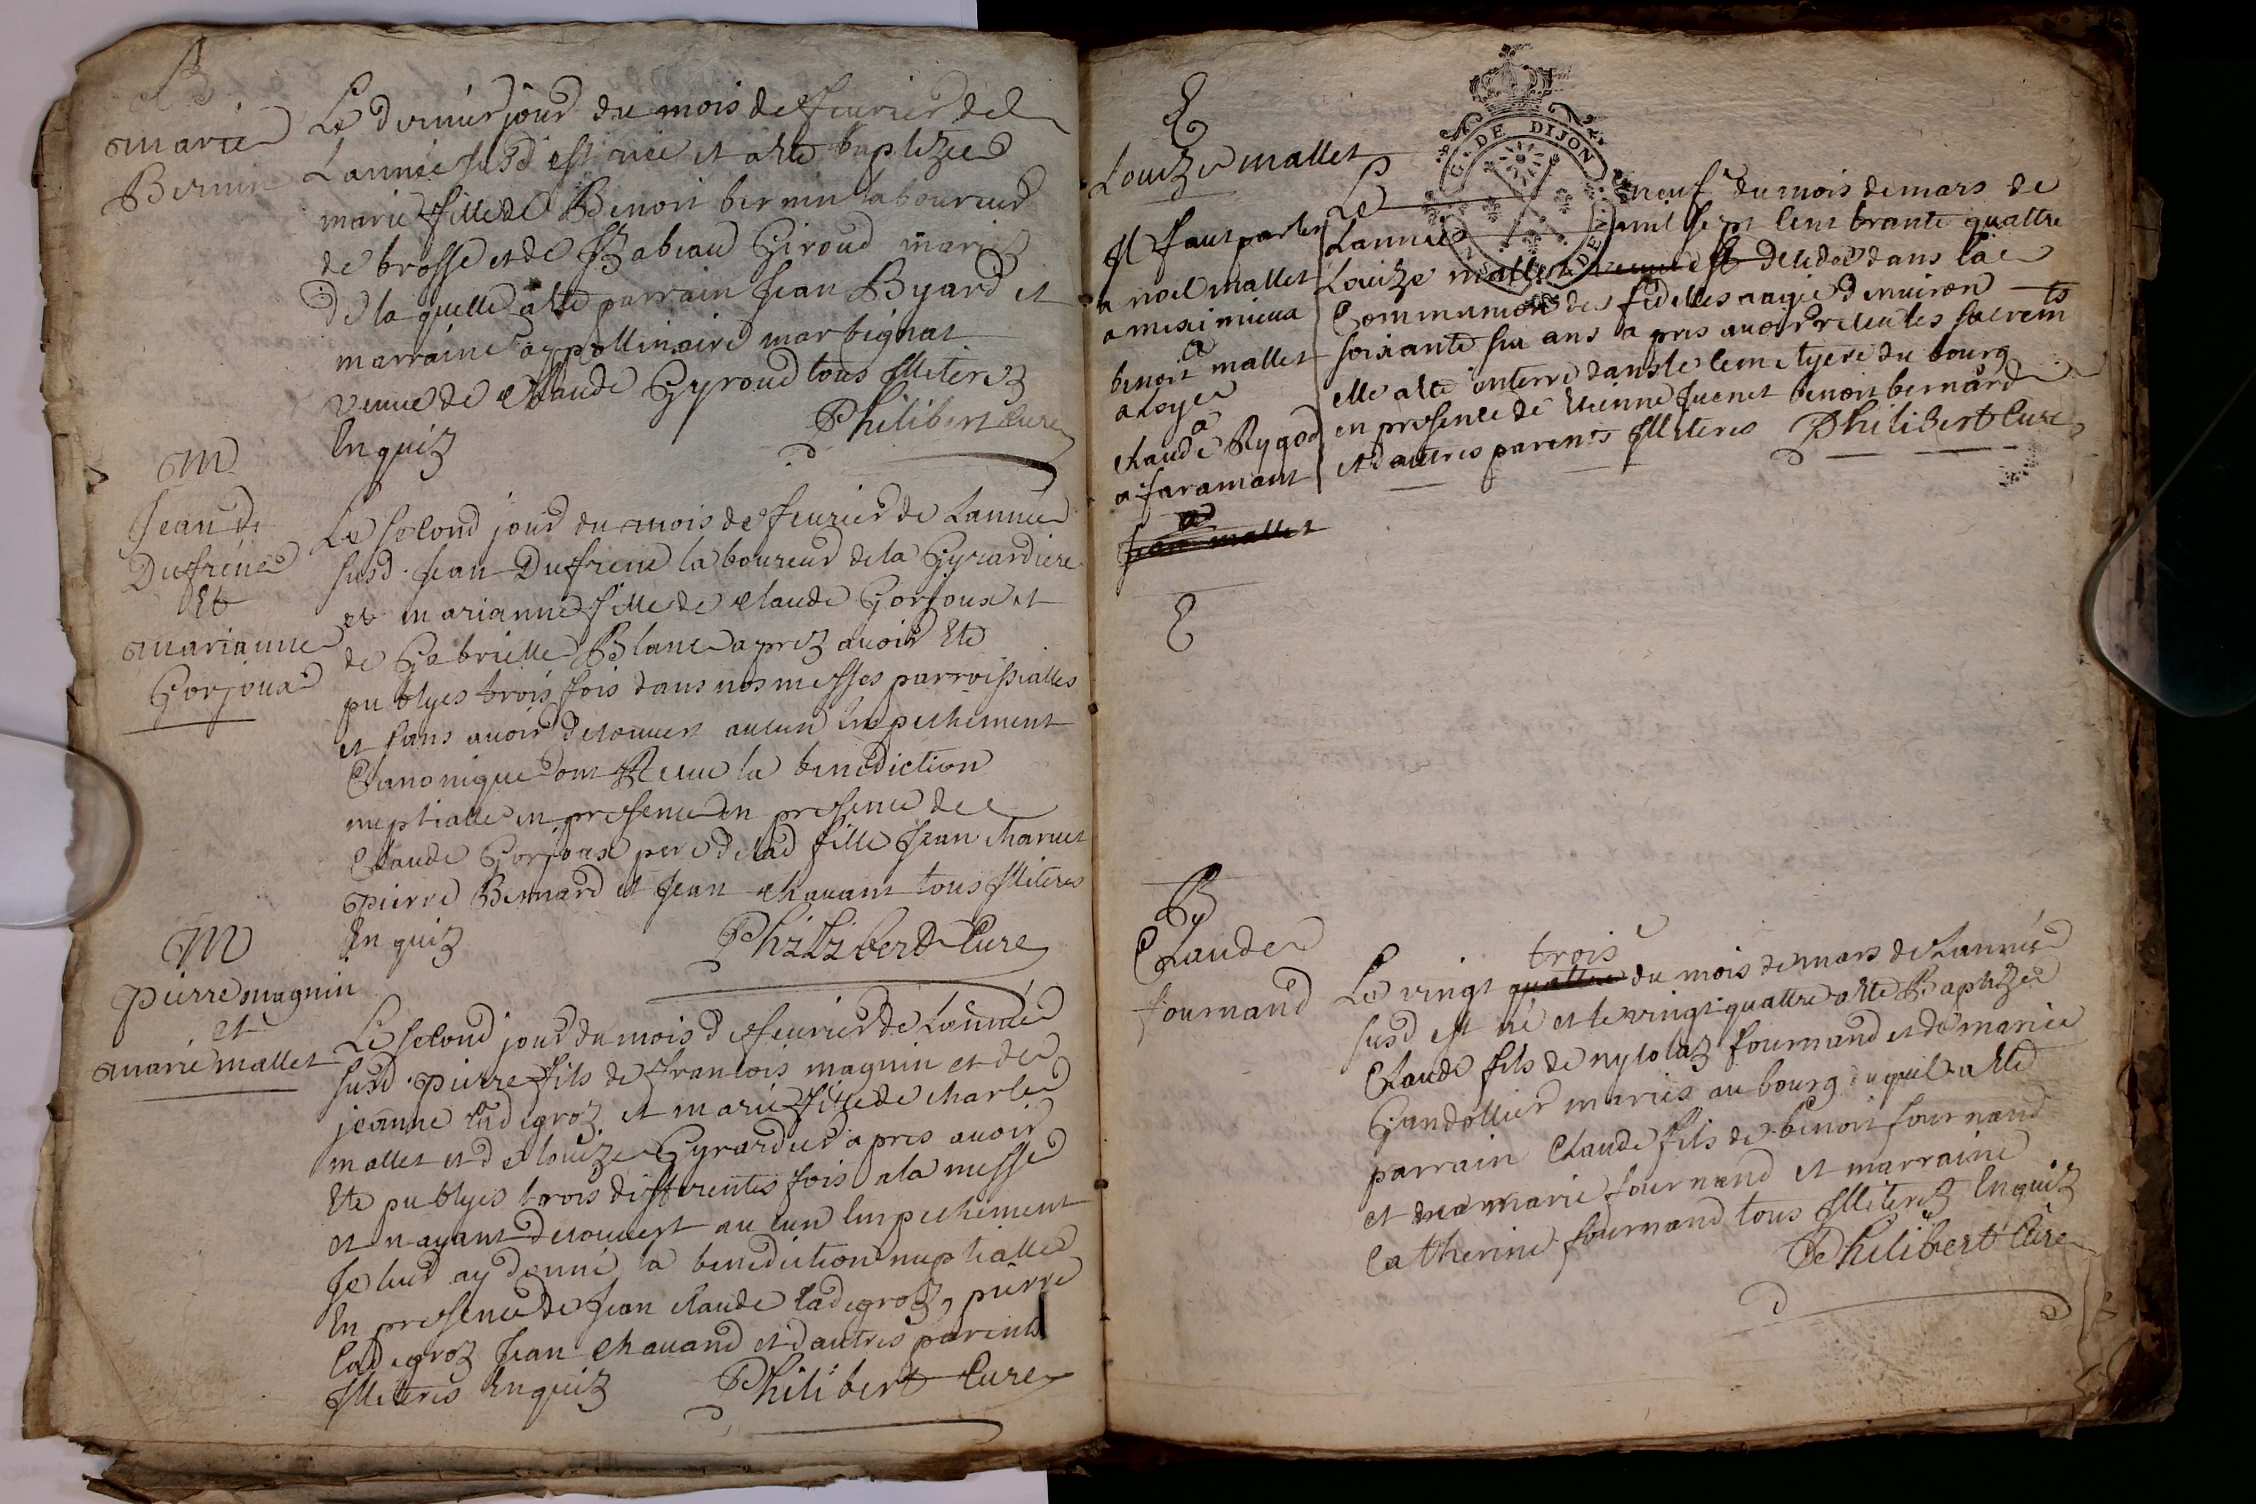 B
marie
Bernin
Le dernier jour du mois de feurier de
Lannée susd est née et a été baptizée
marie fille de Benoit bernin laboureur
de brosse et de Babiau Giroud mariés
de laquelle a été parrain Jean Byard et
marraine appollinaire marbignat
veuue de Claude Gyroud tous illiterez
Enquiz
Philibert Cure
M
Jean
Dufrene
Et
marianne
Gorjoux
Le second jour du mois de feurier de Lannée
susd. Jean Dufrene laboureur de la Gyrardiere
et marianne fille de Claude Gorjoux et
de Gabrielle Blanc aprez auoir Eté
publyes trois fois dans nos messes parroissialles
et sans auoir decouuert aucun Empechement
Canonique ont Receu la benediction
nuptialle en presence en presence de
Claude Gorjoux pere de lad fille Jean charuet
pierre Bernard et Jean chauant tous illiteres
Enquiz
Philibert Cure
M
pierre magnin
et
marie mallet
Le second jour du mois de feurier de Lannée
susd. pierre fils de francois magnin et de
jeanne Cadegroz et marie fille de charle
mallet et de louize Gyrardier apres auoir
Eté publyes trois differentes fois a la messe
et nayant decouuert aucun Empechement
Je leur ay donné la benediction nuptialle
En presence de Jean claude Cadegroz, pierre
Cadegroz Jean Chauand et dautres parents
illiteres Enquiz
Philibert Cure
E
Louize mallet
Il faut parler
a noel mallet
a meximieux
a
benoit mallet
a Loye
a
claude Rygod
a faramant
a
Jean mallet
G. DE DIJON
Le neuf du mois de mars de
Lannée mil sept cent trante quattre
Louize mallet veuue est decedée dans la
Communion des fidelles aagée denuiron
soixante six ans apres auoir receu les sacremts
elle a été enterré dans le cemetyere du bourg
en presence de Etienne Juenet benoit bernard
et dautres parents illiteres Philibert Cure
E
B
Claude
fournand
Le vingt quattre trois du mois de mars de Lannée
susd est né et le vingt quattre a été Baptizé
Claude fils de nycolas fournand et de marie
Gandollier mariés au bourg duquel a été
parrain Claude fils de benoit fournand
et marie fournand et marraine
Catherine fournand tous illiterez Enquiz
Philibert Cure